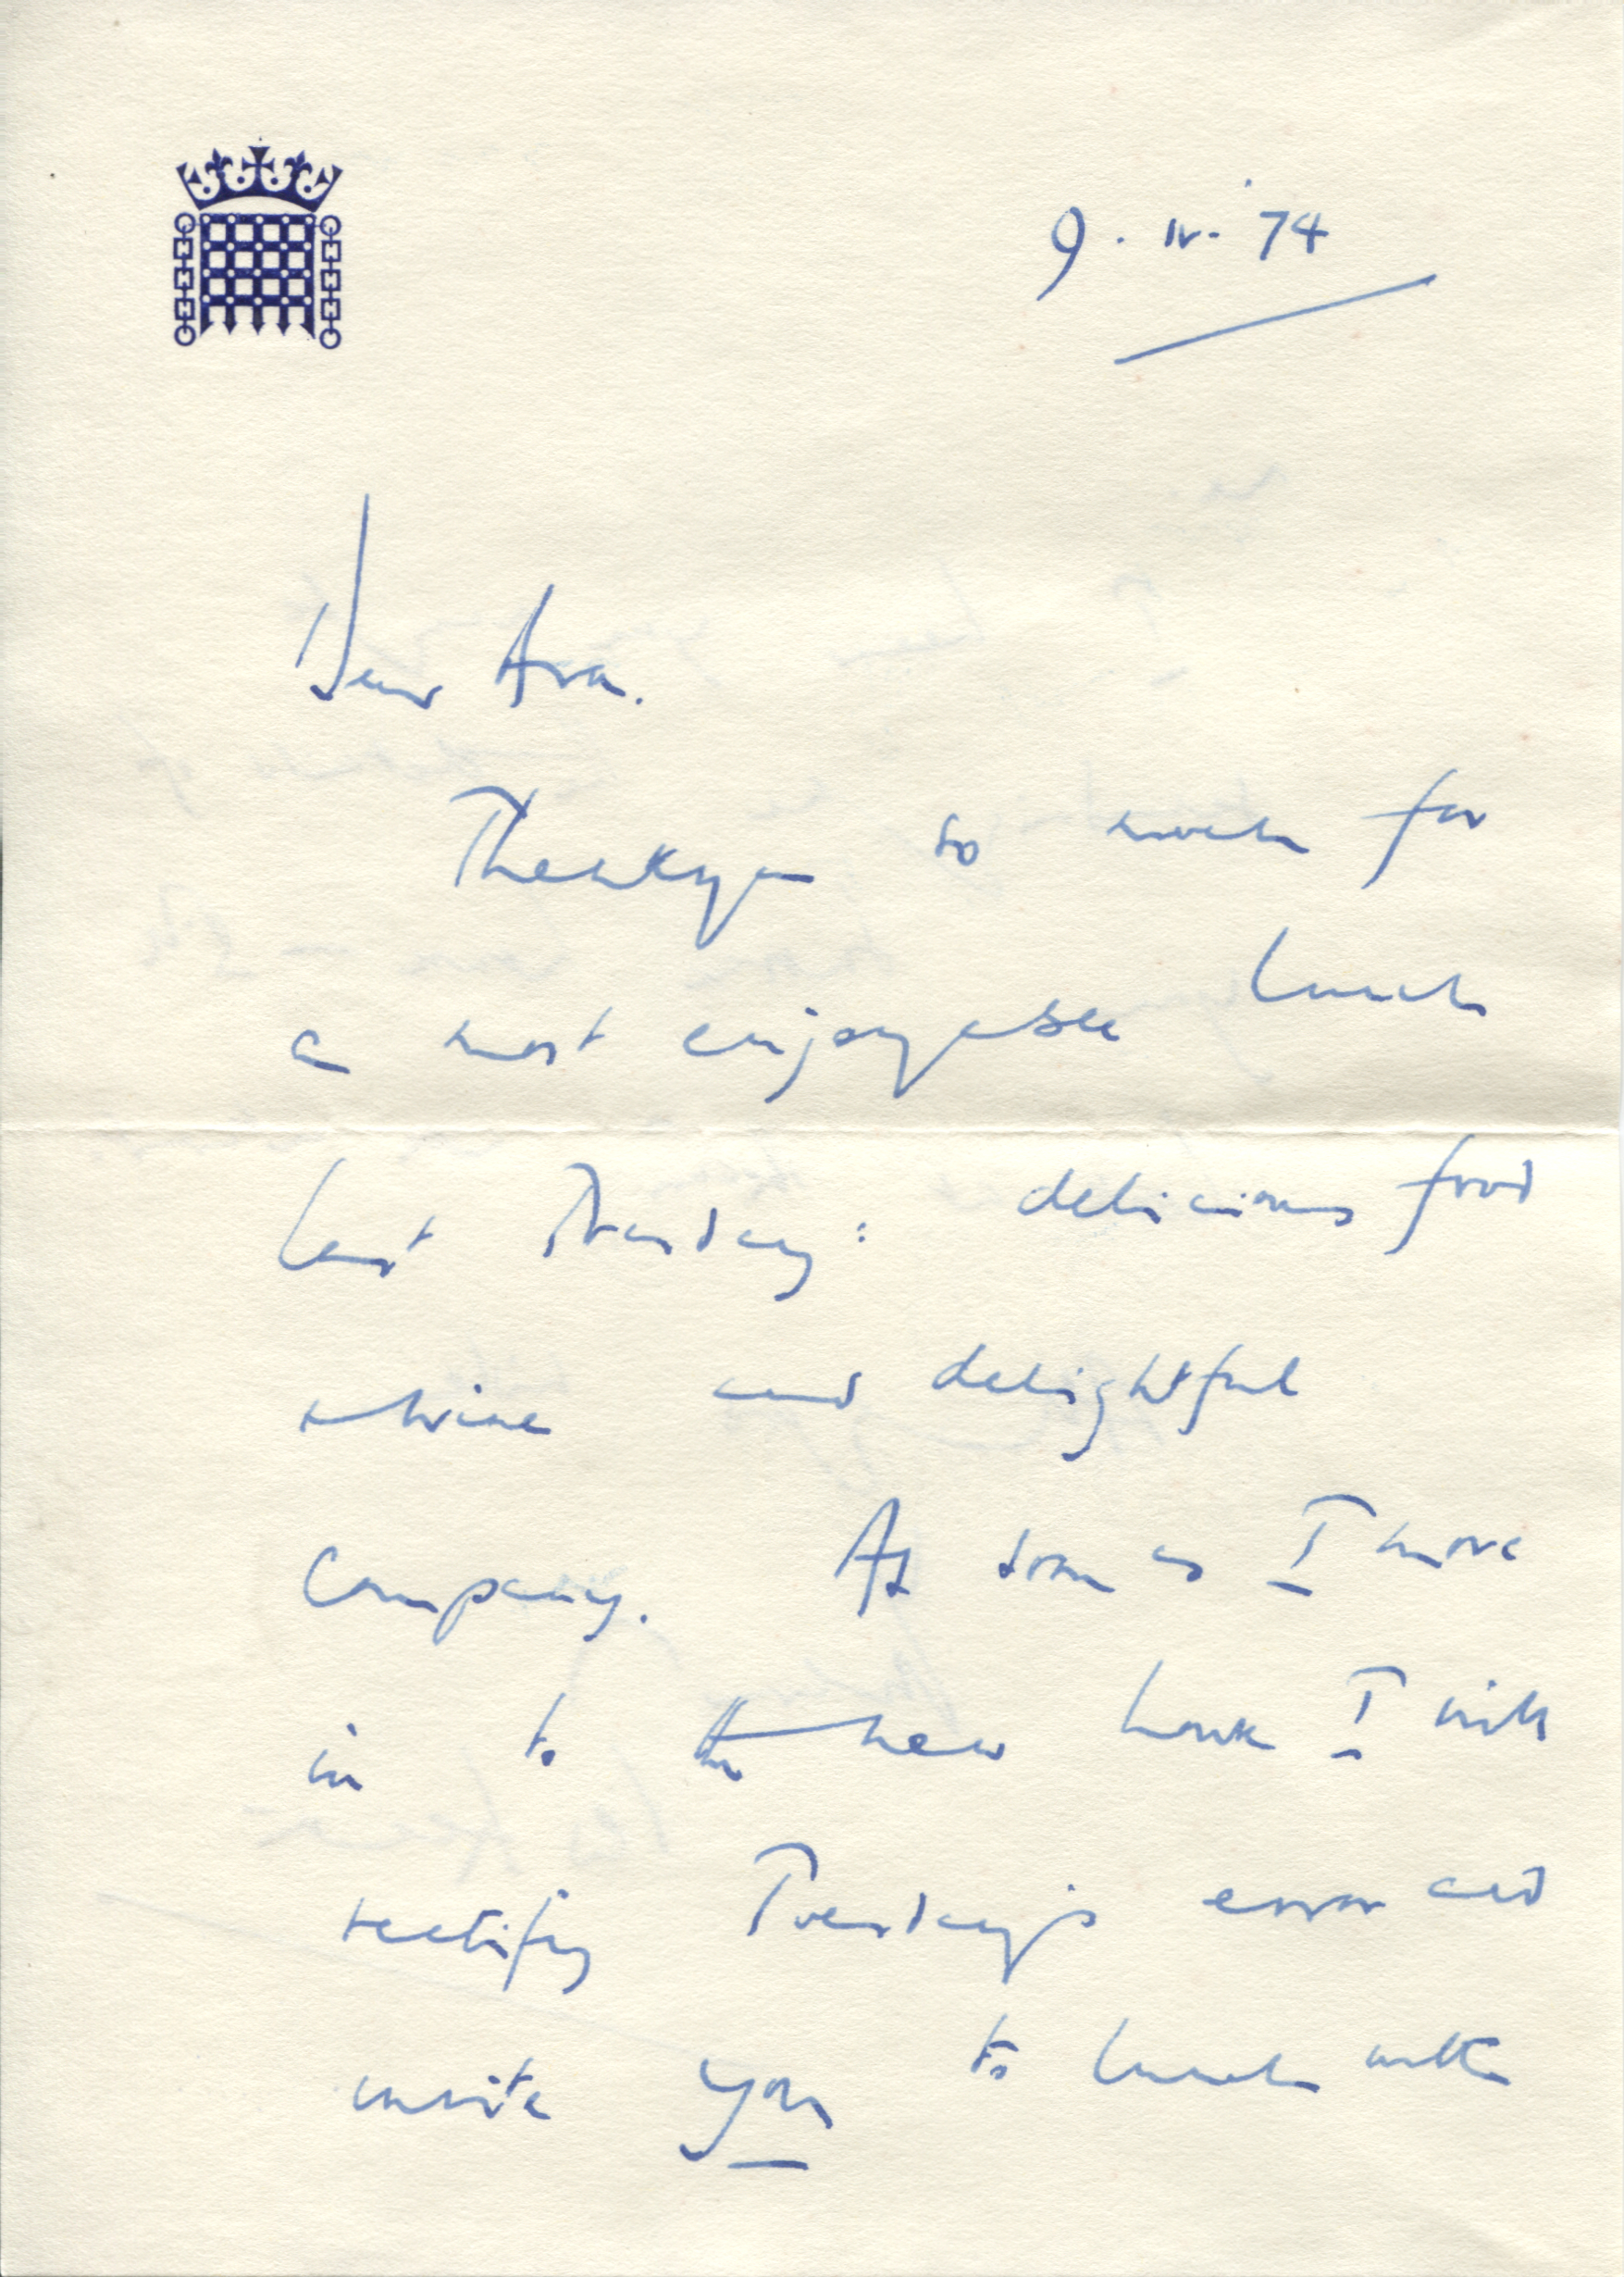 9. IV. 74
Dear Ava.
Thankyou so much for
a most enjoyable lunch
last Tuesday: delicious food
wine and delightful
company. As soon as I move
in to the new house I will
rectify Tuesday's error and
invite you to lunch with